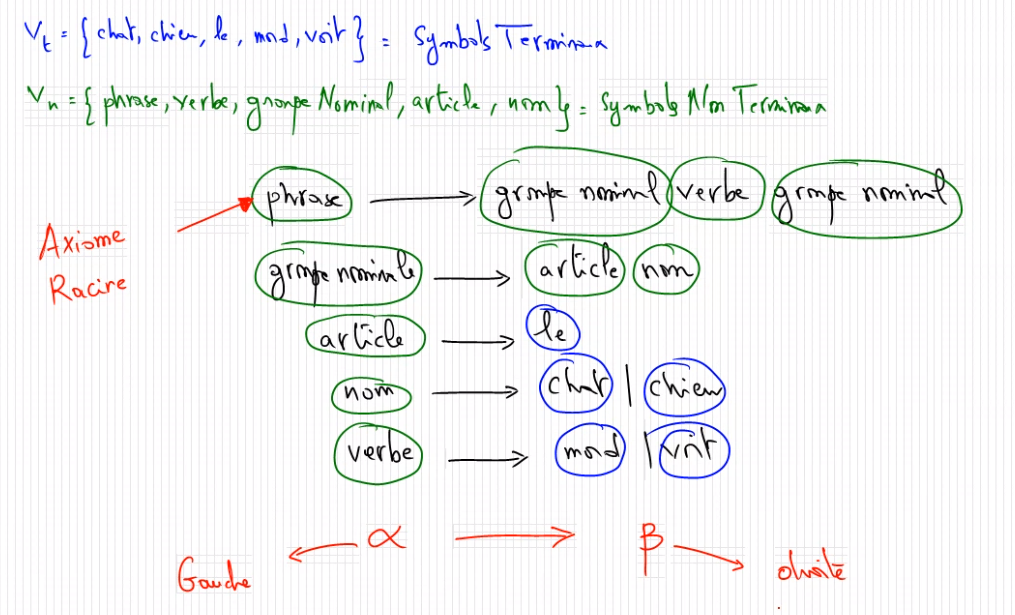 Vt = { chat, chien, le, mord, voit } = Symbols Terminaux
Vn = { phrase, verbe, groupe Nominal, article, nom } = Symbols Non Terminaux
phrase → groupe nominal verbe groupe nominal
Axiome
Racine
groupe nominale → article nom
article → le
nom → chat | chien
verbe → mord | voit
α → β
Gauche droite